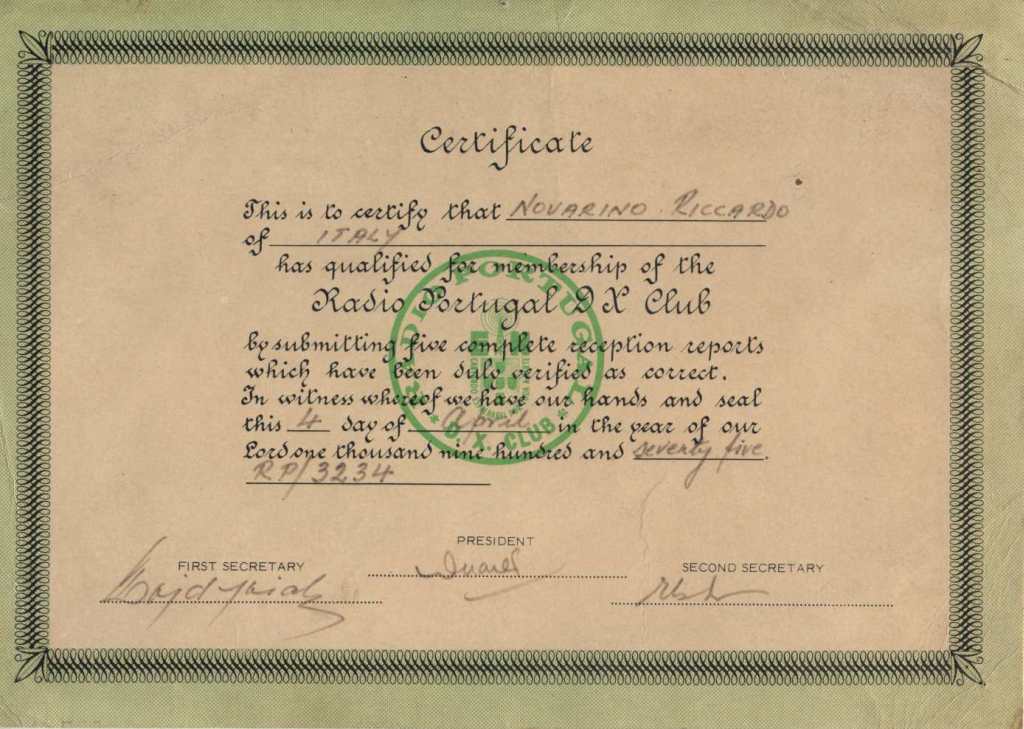 Certificate
This is to certify that NOVARINO RICCARDO
of ITALY
has qualified for membership of the
Radio Portugal DX Club
by submitting five complete reception reports
which have been duly verified as correct.
In witness whereof we have our hands and seal
this 4 day of April in the year of our
Lord one thousand nine hundred and seventy five.
RP/3234
RADIO PORTUGAL
D.X. CLUB
PRESIDENT
FIRST SECRETARY
SECOND SECRETARY